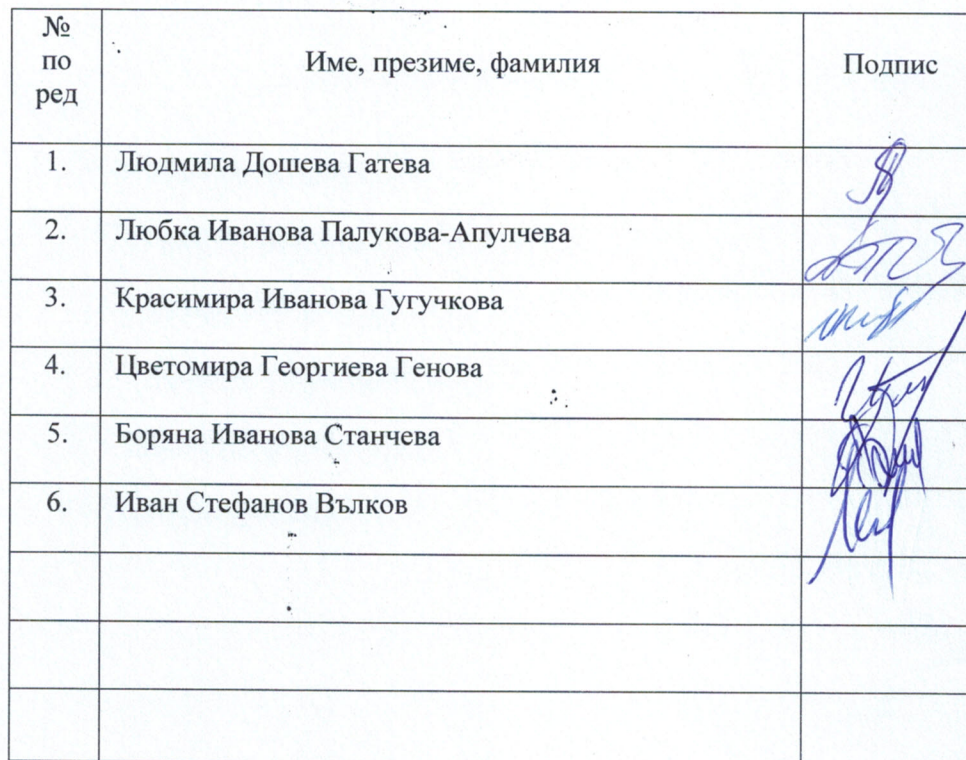 №
по
ред
Име, презиме, фамилия
Подпис
1. Людмила Дошева Гатева
2. Любка Иванова Палукова-Апулчева
3. Красимира Иванова Гугучкова
4. Цветомира Георгиева Генова
5. Боряна Иванова Станчева
6. Иван Стефанов Вълков